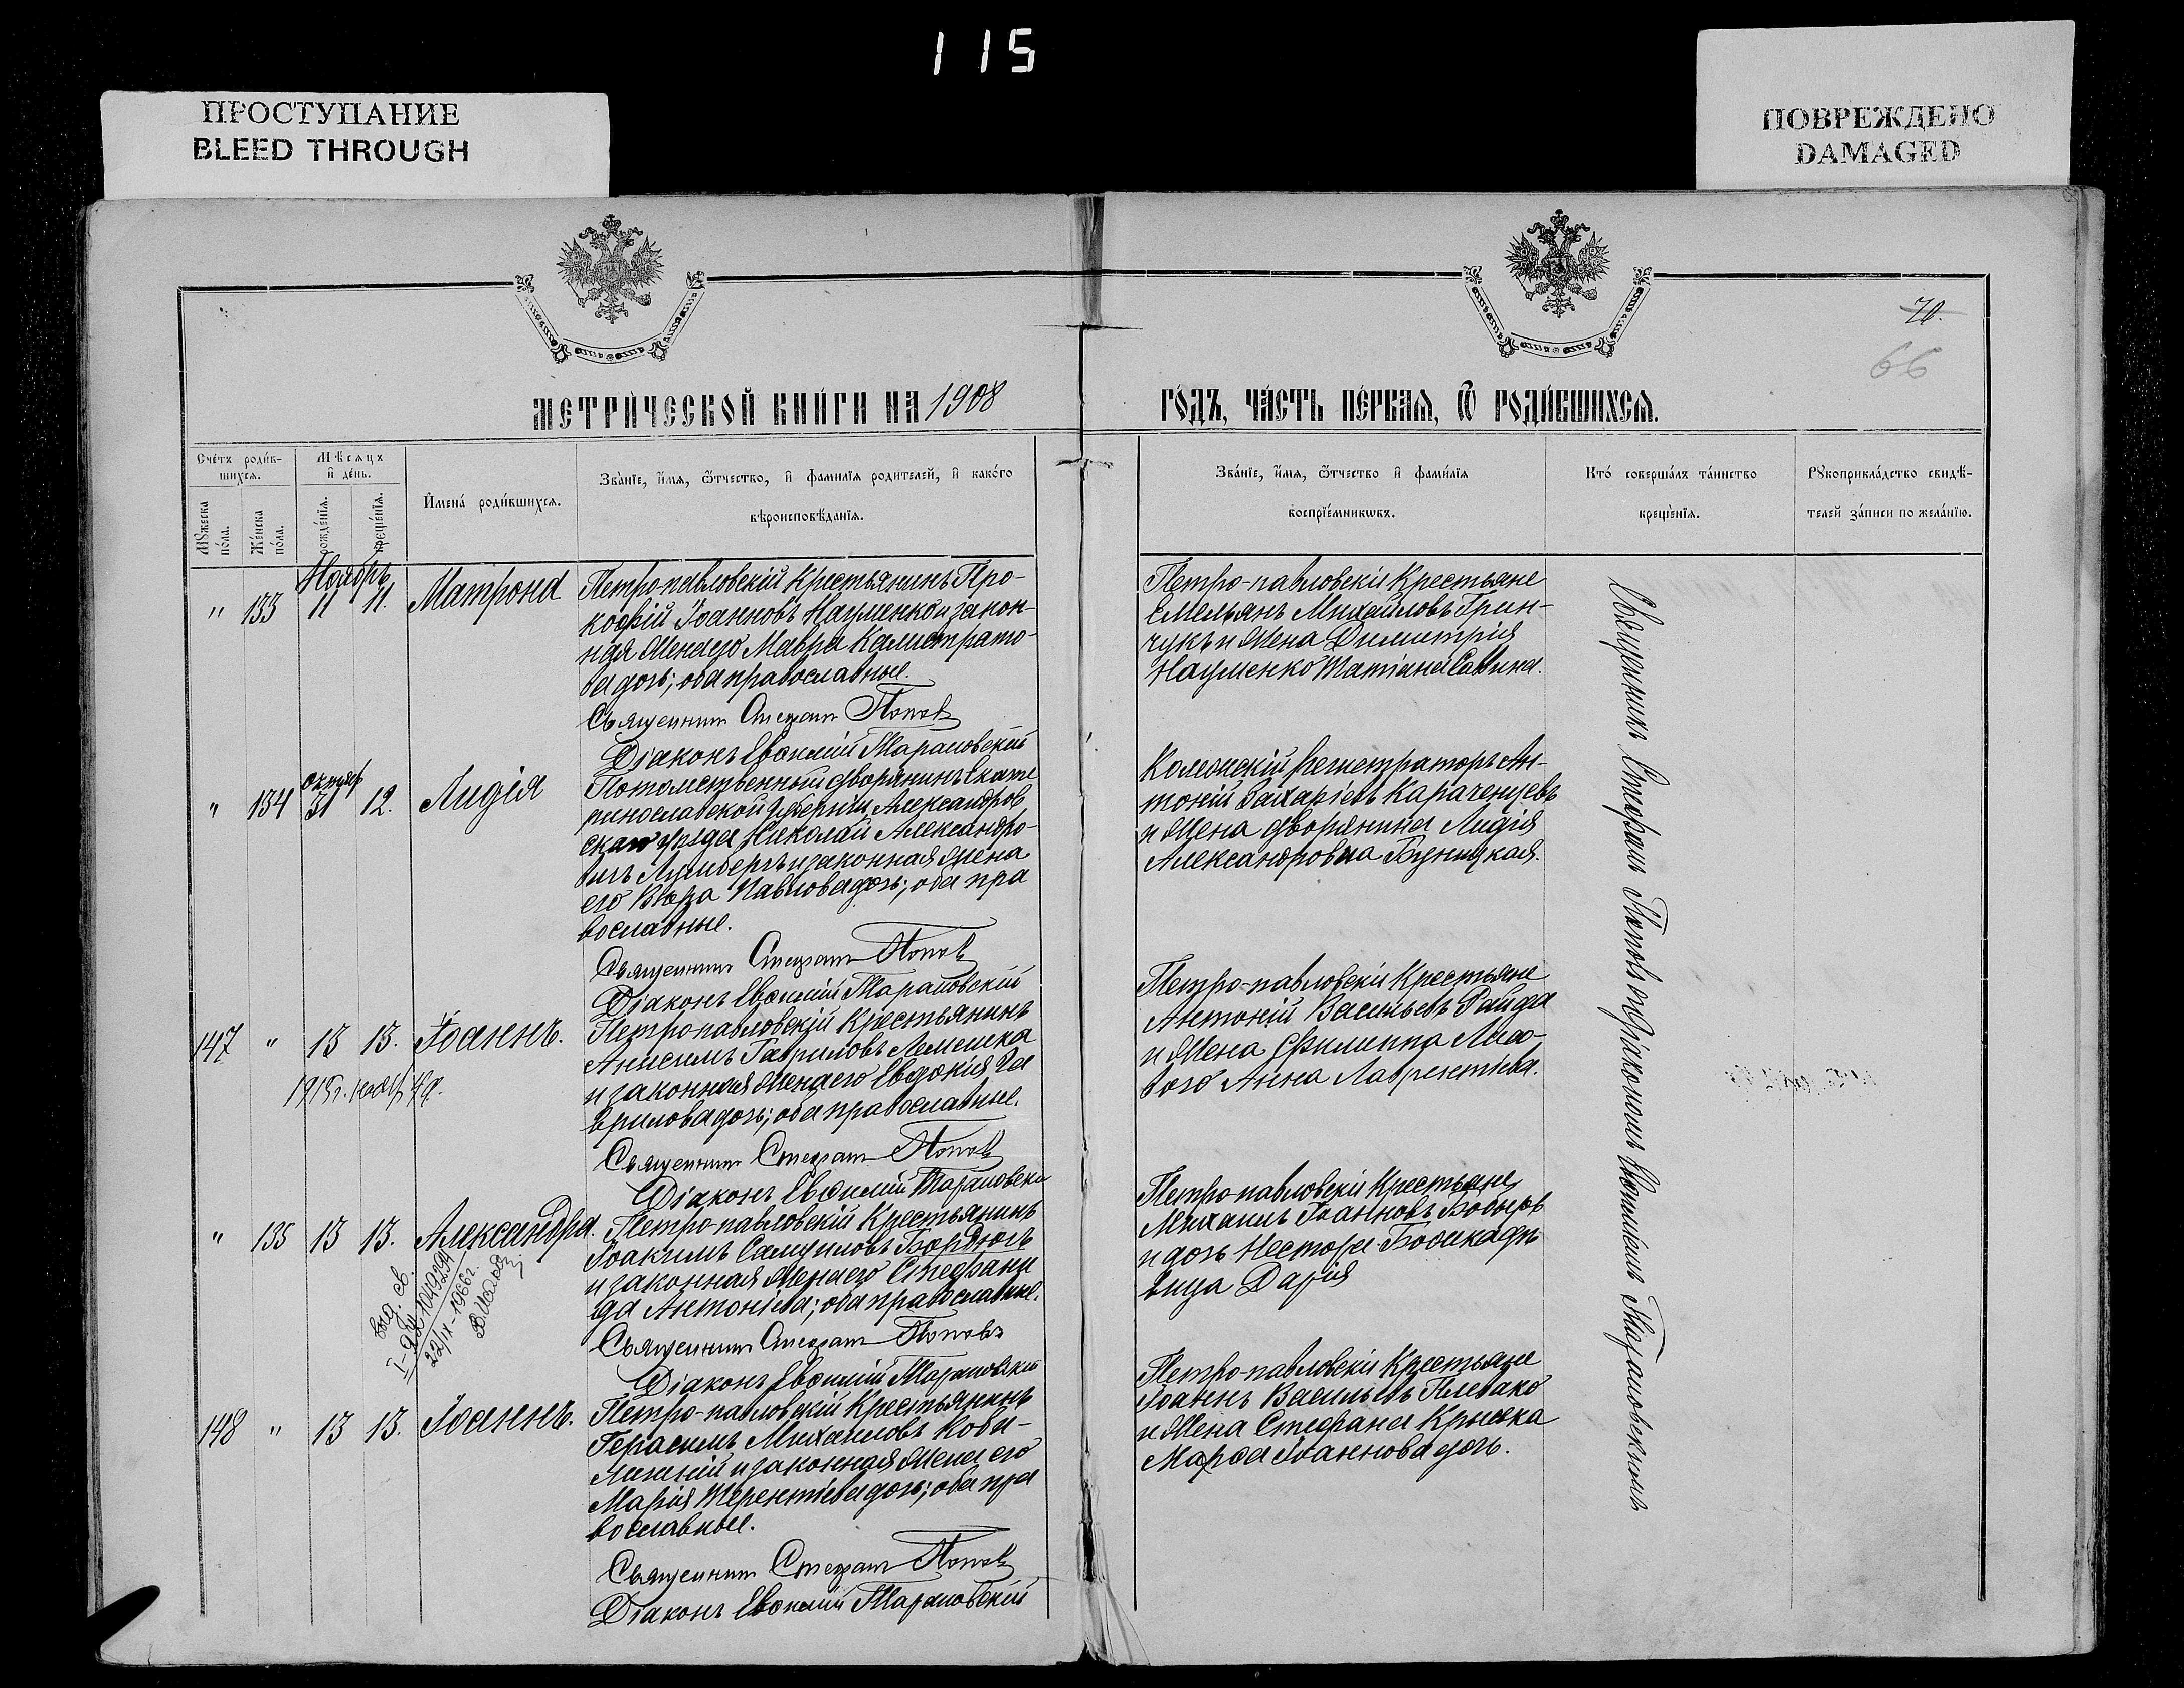 115
ПРОСТУПАНИЕ
BLEED THROUGH
ПОВРЕЖДЕНО
DAMAGED
70.
66
МЕТРИ́ЧЕСКОЙ КНИ́ГИ НА 1908
ГО́ДЪ, ЧА́СТЬ ПЕ́РВАѦ, Ѿ РОДИ́ВШИХСѦ.
Сче́тъ роди́в-
шихсѧ.
Мѣсѧцъ
и̂ де́нь.
Мꙋ́жеска по́ла.
Же́нска по́ла.
рожде́нїѧ.
креще́нїѧ.
И̂мена̀ роди́вшихсѧ.
Зва́нїе, и̂́мѧ, ѻ̂́тчество, и̂ фами́лїѧ родителей, и̂ како́гѡ
вѣроисповѣданїѧ.
Зва́нїе, и̂́мѧ, ѻ̂́тчество и̂ фами́лїѧ
воспрїе́мникѡвъ.
Кто́ соверша́лъ та́инство
креще́нїѧ.
Рꙋкоприкла́дство свидѣ́-
телей за́писи по жела́нїю.
Ноябрь
" 133 11 11. Матрона
Петро-павловскій Крестьянинъ Про-
кофій Іоанновъ Науменко и закон-
ная Жена его Мавра Калистрато-
ва дочь; оба православные.
Священникъ Стефанъ Поповъ
Діаконъ Евѳимій Тарановскій
Петро-павловскіи Крестьяне
Емельянъ Михаиловъ Грин-
чукъ и Жена Димитрія
Науменко Татіана Савина.
Октяб
" 134 31 12. Лидія
Потомственный дворянинъ Екате
ринославской Губерніи, Александров
скаго уѣзда Николай Александро-
вичъ и законная Жена
его Вѣра Павлова дочь; оба пра
вославные.
Священникъ Стефанъ Поповъ
Діаконъ Евѳимій Тарановскій
Колежскій Регистраторъ Ан-
тоній Захаріевъ Караченцевъ
и Жена дворянина Лидія
Александровна Буницкая.
147 " 13 13. Іоаннъ.
Петро-павловскій Крестьянинъ
Анисимъ Гавриловъ Лемешка
и законная Жена его Евдокія Га
врилова дочь; оба православные.
Священникъ Стефанъ Поповъ
Діаконъ Евѳимій Тарановскій
Петро-павловскіи Крестьяне
Антоній Васильевъ Гайда
и Жена Филиппа
Анна Лаврентіева.
" 135 13 13. Александра.
выд. св.
22/IX-1966г.
Петро-павловскій Крестьянинъ
Іоакимъ Самуиловъ Бордюгъ
и законная Жена его Стефани
да Антоніева; оба православные.
Священникъ Стефанъ Поповъ
Діаконъ Евѳимій Тарановскій
Петро-павловскіи Крестьяне
Михаилъ Іоанновъ Бобыръ
и дочь Нестора
Дарія
148 " 13 13. Іоаннъ.
Петро-павловскій Крестьянинъ
Герасимъ Михаиловъ
и законная Жена его
Марія Терентіева дочь; оба пра
вославные.
Священникъ Стефанъ Поповъ
Діаконъ Евѳимій Тарановскій
Петро-павловскіи Крестьяне
Іоаннъ Васильевъ Плевако
и Жена Стефана Крышка
Марѳа Іоаннова дочь.
Священникъ Стефанъ Поповъ съ діакономъ Евѳиміемъ Тарановскимъ